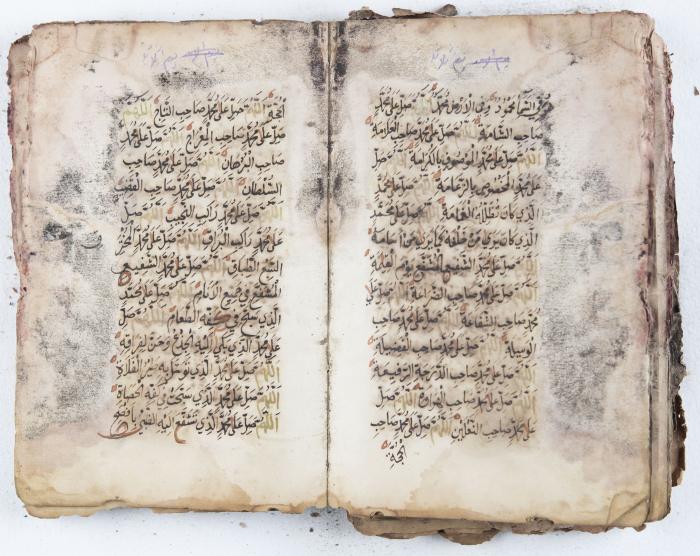 في السماء محمود وفي الارض محمد اللهم صل على محمد
صاحب الشامة اللهم صل على محمد صاحب العلامة
اللهم صل على محمد الموصوف بالكرامة اللهم صل
على محمد المخصوص بالزعامة اللهم صل على محمد
الذي كان تظلله الغمامة اللهم صل على محمد
الذي كان يرى من خلفه كما يرى من امامه
اللهم صل على محمد الشفيع المشفع يوم القيمة
اللهم صل على محمد صاحب الضراعة اللهم صل على
محمد صاحب الشفاعة اللهم صل على محمد صاحب
الوسيلة اللهم صل على محمد صاحب الفضيلة
اللهم صل على محمد صاحب الدرجة الرفيعة
اللهم صل على محمد صاحب الهراوة اللهم صل
على محمد صاحب النعلين اللهم صل على محمد صاحب
الحجة
الحجة اللهم صل على محمد صاحب التاج اللهم
صل على محمد صاحب المعراج اللهم صل على محمد
صاحب البرهان اللهم صل على محمد صاحب
السلطان اللهم صل على محمد صاحب القضيب
اللهم صل على محمد راكب النجيب اللهم صل
على محمد راكب البراق اللهم صل على محمد مخترق
السبع الطباق اللهم صل على محمد الشفيع
المشفع في جميع الانام اللهم صل على محمد
الذي سبح في كفه الطعام اللهم صل
على محمد الذي بكى اليه الجذع وحن لفراقه
اللهم صل على محمد الذي توسل به طير الفلاة
اللهم صل على محمد الذي سبحت في كفه الحصاة
اللهم صل على محمد الذي تشفع اليه الظبي بافصح